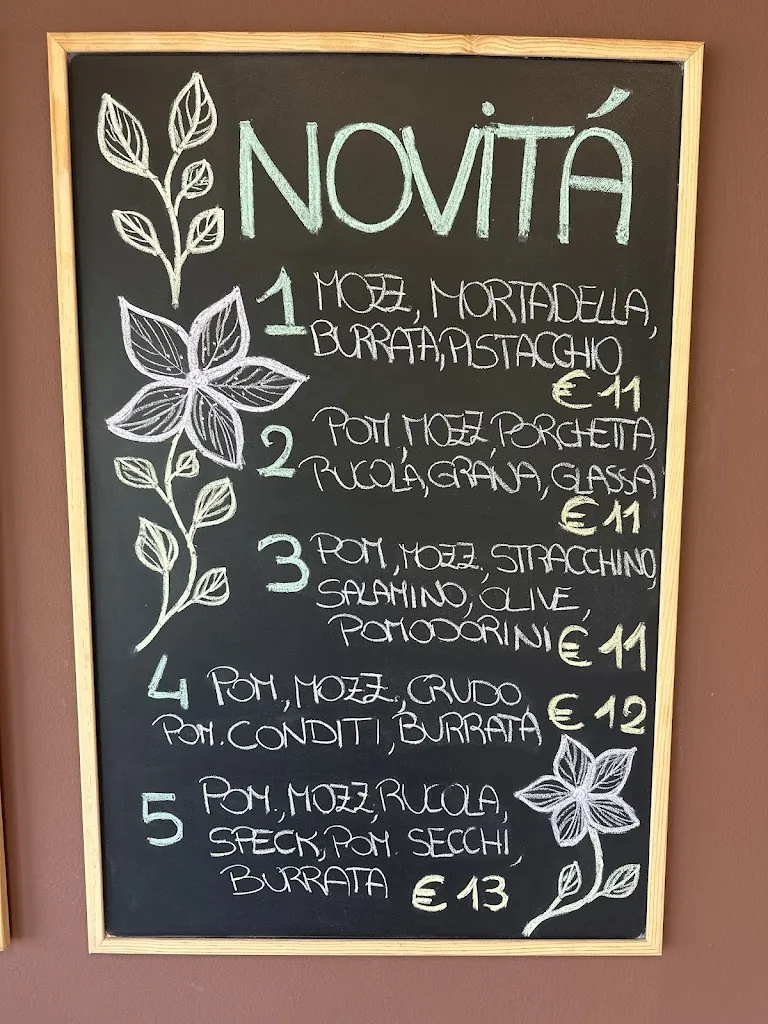 NOVITÁ
1 MOZZ, MORTADELLA,
BURRATA, PISTACCHIO
€ 11
2 POM, MOZZ, PORCHETTA,
RUCOLA, GRANA, GLASSA
€ 11
3 POM, MOZZ, STRACCHINO,
SALAMINO, OLIVE,
POMODORINI € 11
4 POM, MOZZ, CRUDO,
POM. CONDITI, BURRATA € 12
5 POM., MOZZ, RUCOLA,
SPECK, POM. SECCHI,
BURRATA € 13